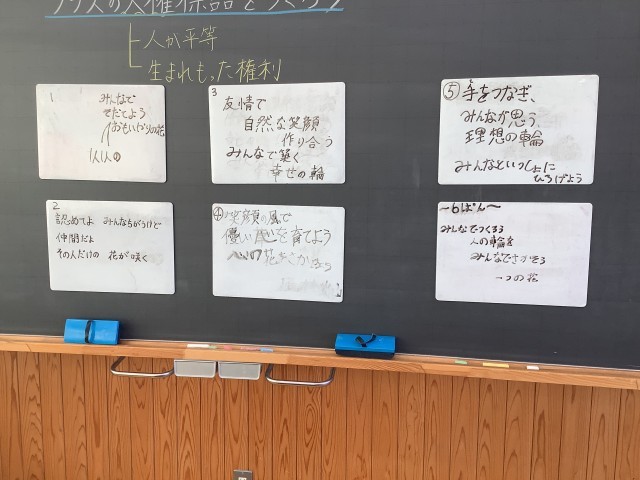 クラスの人権標語をつくろう
人が平等
生まれもった権利
1
みんなで
そだてよう
おもいやりの花
1人1人の
2
認めてよ みんなちがうけど
仲間だよ
その人だけの 花が咲く
3
友情で
自然な笑顔
作り合う
みんなで築く
幸せの輪
④
笑顔の風で
優しい心を育てよう
心の花
⑤
手をつなぎ、
みんなが思う、
理想の輪
みんなといっしょに
ひろげよう
〜6ぱん〜
みんなでつくろう
人の輪を
みんなでさかそう
一つの花